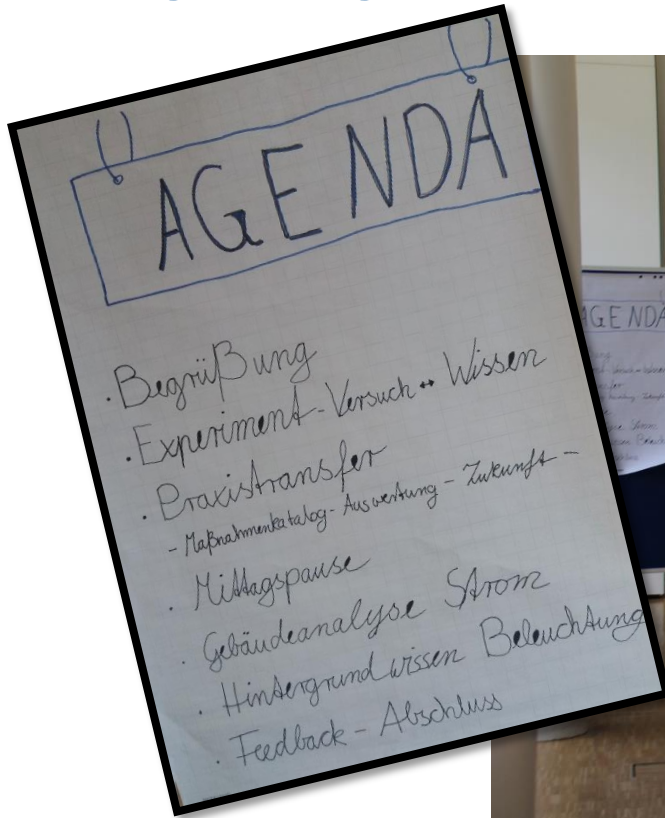 AGENDA
· Begrüßung
· Experiment - Versuch ↔ Wissen
· Praxistransfer
- Maßnahmenkatalog - Auswertung - Zukunft -
· Mittagspause
· Gebäudeanalyse Strom
· Hintergrundwissen Beleuchtung
· Feedback - Abschluss
AGENDA